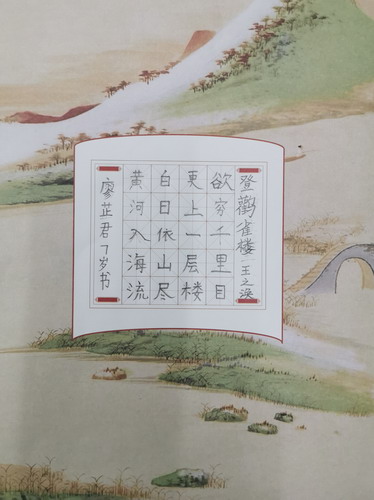 登鹳雀楼 王之涣
欲穷千里目
更上一层楼
白日依山尽
黄河入海流
廖芷君7岁书